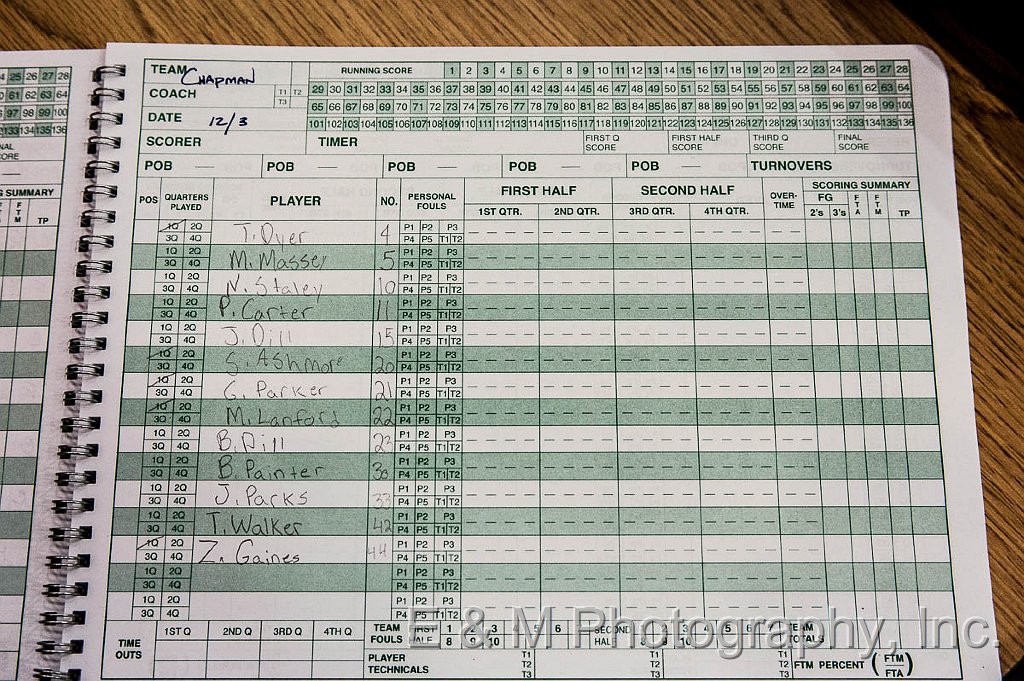 25 26 27 28
TEAM CHAPMAN RUNNING SCORE 1 2 3 4 5 6 7 8 9 10 11 12 13 14 15 16 17 18 19 20 21 22 23 24 25 26 27 28
60 61 62 63 64
COACH T1 T2 T3 29 30 31 32 33 34 35 36 37 38 39 40 41 42 43 44 45 46 47 48 49 50 51 52 53 54 55 56 57 58 59 60 61 62 63 64
96 97 98 99 100
65 66 67 68 69 70 71 72 73 74 75 76 77 78 79 80 81 82 83 84 85 86 87 88 89 90 91 92 93 94 95 96 97 98 99 100
133 134 135 136
DATE 12/3 101 102 103 104 105 106 107 108 109 110 111 112 113 114 115 116 117 118 119 120 121 122 123 124 125 126 127 128 129 130 131 132 133 134 135 136
SCORE
SCORER TIMER FIRST Q SCORE FIRST HALF SCORE THIRD Q SCORE FINAL SCORE
POB — POB — POB — POB — POB — TURNOVERS
SUMMARY
FTM TP
POS QUARTERS PLAYED PLAYER NO. PERSONAL FOULS FIRST HALF SECOND HALF OVER-TIME SCORING SUMMARY
1ST QTR. 2ND QTR. 3RD QTR. 4TH QTR. FG 2's 3's FTA FTM TP
1Q 2Q T. Dyer 4 P1 P2 P3
3Q 4Q P4 P5 T1 T2
1Q 2Q M. Massey 5 P1 P2 P3
3Q 4Q P4 P5 T1 T2
1Q 2Q N. Staley 10 P1 P2 P3
3Q 4Q P4 P5 T1 T2
1Q 2Q P. Carter 11 P1 P2 P3
3Q 4Q P4 P5 T1 T2
1Q 2Q J. Dill 15 P1 P2 P3
3Q 4Q P4 P5 T1 T2
1Q 2Q S. Ashmore 20 P1 P2 P3
3Q 4Q P4 P5 T1 T2
1Q 2Q G. Parker 21 P1 P2 P3
3Q 4Q P4 P5 T1 T2
1Q 2Q M. Lanford 22 P1 P2 P3
3Q 4Q P4 P5 T1 T2
1Q 2Q B. Dill 23 P1 P2 P3
3Q 4Q P4 P5 T1 T2
1Q 2Q B. Painter 30 P1 P2 P3
3Q 4Q P4 P5 T1 T2
1Q 2Q J. Parks 33 P1 P2 P3
3Q 4Q P4 P5 T1 T2
1Q 2Q T. Walker 42 P1 P2 P3
3Q 4Q P4 P5 T1 T2
1Q 2Q Z. Gaines 44 P1 P2 P3
3Q 4Q P4 P5 T1 T2
1Q 2Q P1 P2 P3
3Q 4Q P4 P5 T1 T2
1Q 2Q P1 P2 P3
3Q 4Q P4 P5 T1 T2
TIME OUTS 1ST Q 2ND Q 3RD Q 4TH Q TEAM FOULS FIRST HALF 1 2 3 4 5 6 7 8 9 10 SECOND HALF 1 2 3 4 5 6 7 8 9 10 TEAM TOTALS
PLAYER TECHNICALS T1 T2 T3 T1 T2 T3 T1 T2 T3 FTM PERCENT (FTM/FTA)
E & M Photography, Inc.